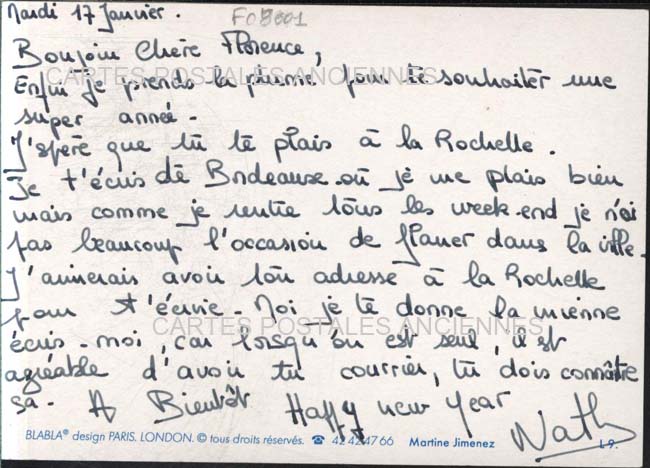 Mardi 17 Janvier. F05001
Boujoin Chère Florence,
CARTES POSTALES ANCIENNES
Enfin je prends la plume pour te souhaiter une
super année.
J'spère que tu te plais à la Rochelle.
Je t'écris de Bordeaux où je me plais bien
mais comme je rentre tous les week-end je n'ai
pas beaucoup l'occasion de flaner dans la ville.
J'aimerais avoir ton adresse à la Rochelle
pour t'écrire. Moi je te donne la mienne
CARTES POSTALES ANCIENNES
écris-moi, car lorsqu'on est seul, il est
agréable d'avoir du courrier, tu dois connaître
sa. A Bientôt Happy new year
Nath
BLABLA® design PARIS. LONDON. © tous droits réservés. ☎ 42 42 47 66 Martine Jimenez L 9.